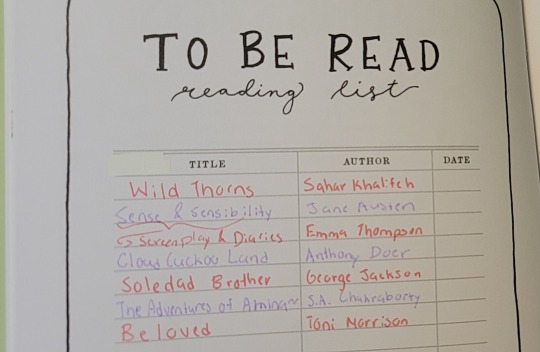 TO BE READ
reading list
TITLE AUTHOR DATE
Wild Thorns Sahar Khalifeh
Sense & Sensibility Jane Austen
↳ Screenplay & Diaries Emma Thompson
Cloud Cuckoo Land Anthony Doer
Soledad Brother George Jackson
The Adventures of Amina S.A. Chakraborty
Beloved Toni Morrison